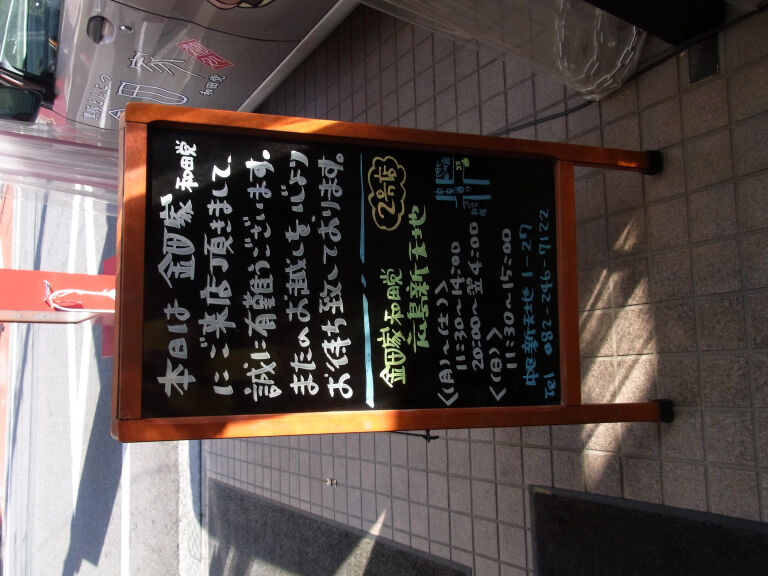 本日は 鈿家 和田党
にご来店頂きまして、
誠に有難うございます。
またのお越しを心より
お待ち致しております。
2号店
鈿家 和田党
広島新天地
〈(月)〜(土)〉
11:30〜14:00
20:00〜翌4:00
〈(日)〉
11:30〜15:00
中区新天地 1-27
Tel 082-246-7122
和田党